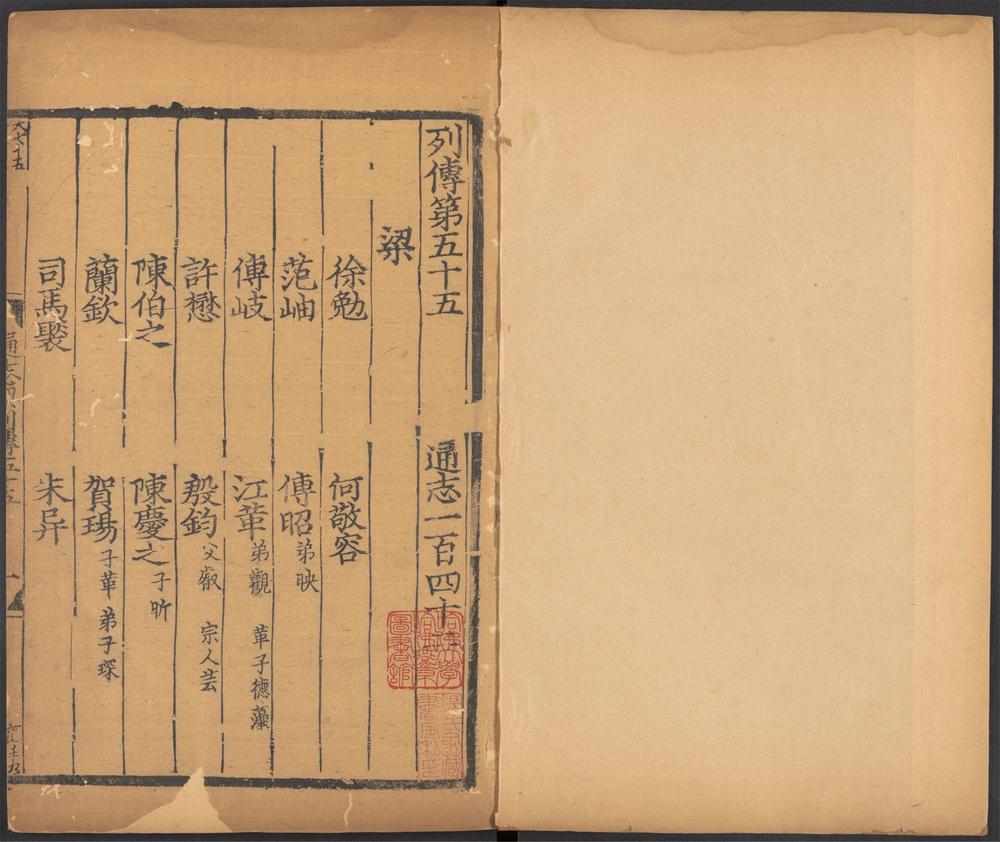 列傳第五十五 通志一百四十二
梁
徐勉 何敬容
范岫 傅昭 弟映
傅岐 江革 弟觀 革子德藻
許懋 殷鈞 父叡 宗人芸
陳伯之 陳慶之 子昕
蘭欽 賀瑒 子革 弟子琛
司馬褧 朱异
哈佛大學哈佛燕京圖書館